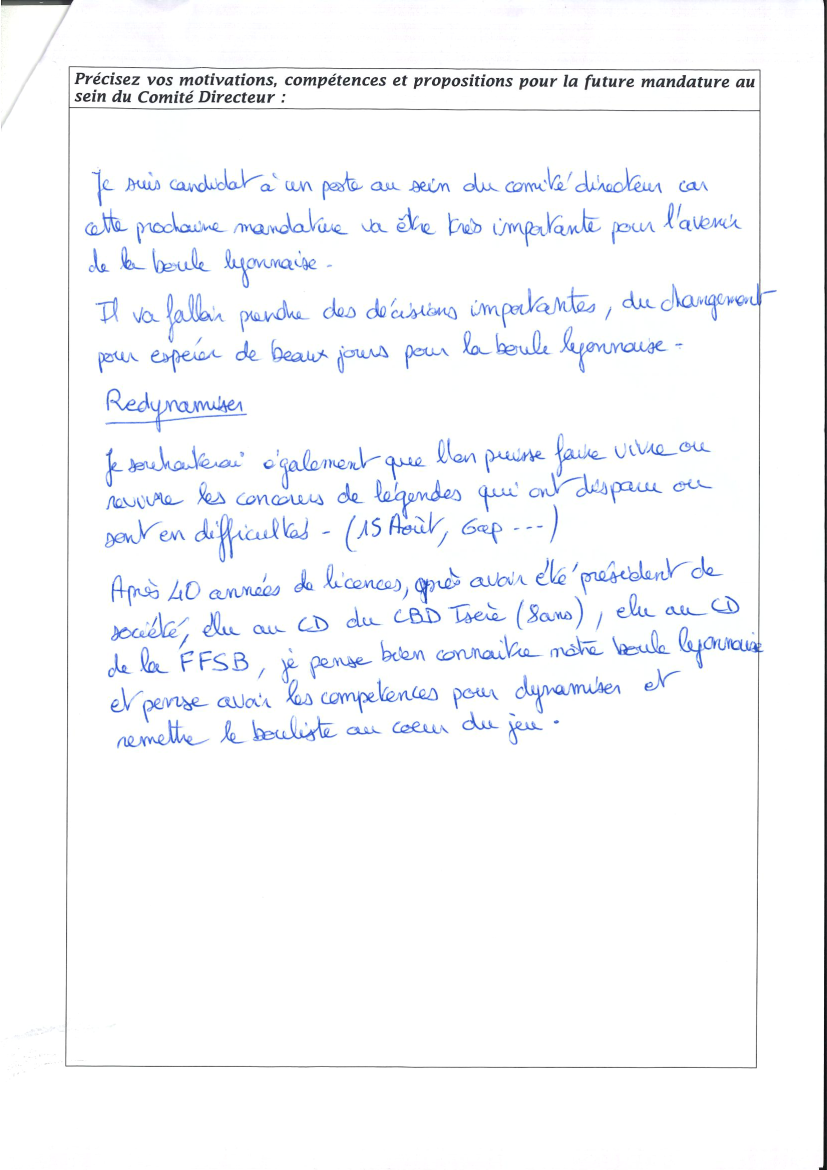 Précisez vos motivations, compétences et propositions pour la future mandature au
sein du Comité Directeur :
Je suis candidat à un poste au sein du comité directeur car
cette prochaine mandature va être très importante pour l'avenir
de la boule lyonnaise -
Il va falloir prendre des décisions importantes, du changement
pour espérer de beaux jours pour la boule lyonnaise -
Redynamiser
Je souhaiterai également que l'on puisse faire vivre ou
revivre les concours de légendes qui ont disparu ou
sont en difficultés - (15 Août, Gap ---)
Après 40 années de licences, après avoir été président de
société, élu au CD du CBD Isère (8ans), élu au CD
de la FFSB, je pense bien connaitre nôtre boule lyonnaise
et pense avoir les compétences pour dynamiser et
remettre le bouliste au coeur du jeu.